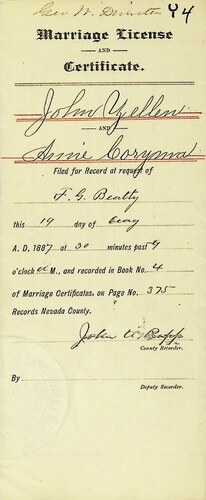 Geo W. Y4
Marriage License
AND
Certificate.
John Yellen
AND
Anne
Filed for Record at request of
F. G. Beatty
this 19 day of May
A. D. 1887 at 30 minutes past 9
o'clock a M., and recorded in Book No. 4
of Marriage Certificates, on Page No. 375
Records Nevada County.
John
County Recorder.
By
Deputy Recorder.